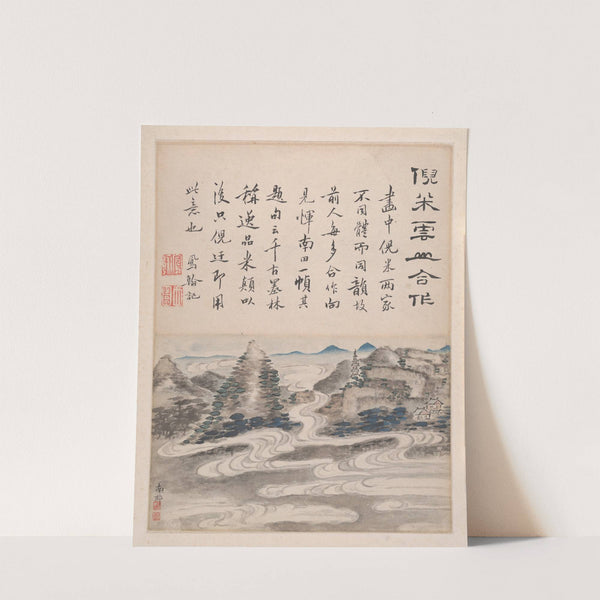 倪米雲山合作
畫中倪米兩家
不同體而同韻故
前人每多合作向
見惲南田一幀其
題句云千古墨林
稱逸品米顛以
後只倪迂即用
此意也 鳳翰記